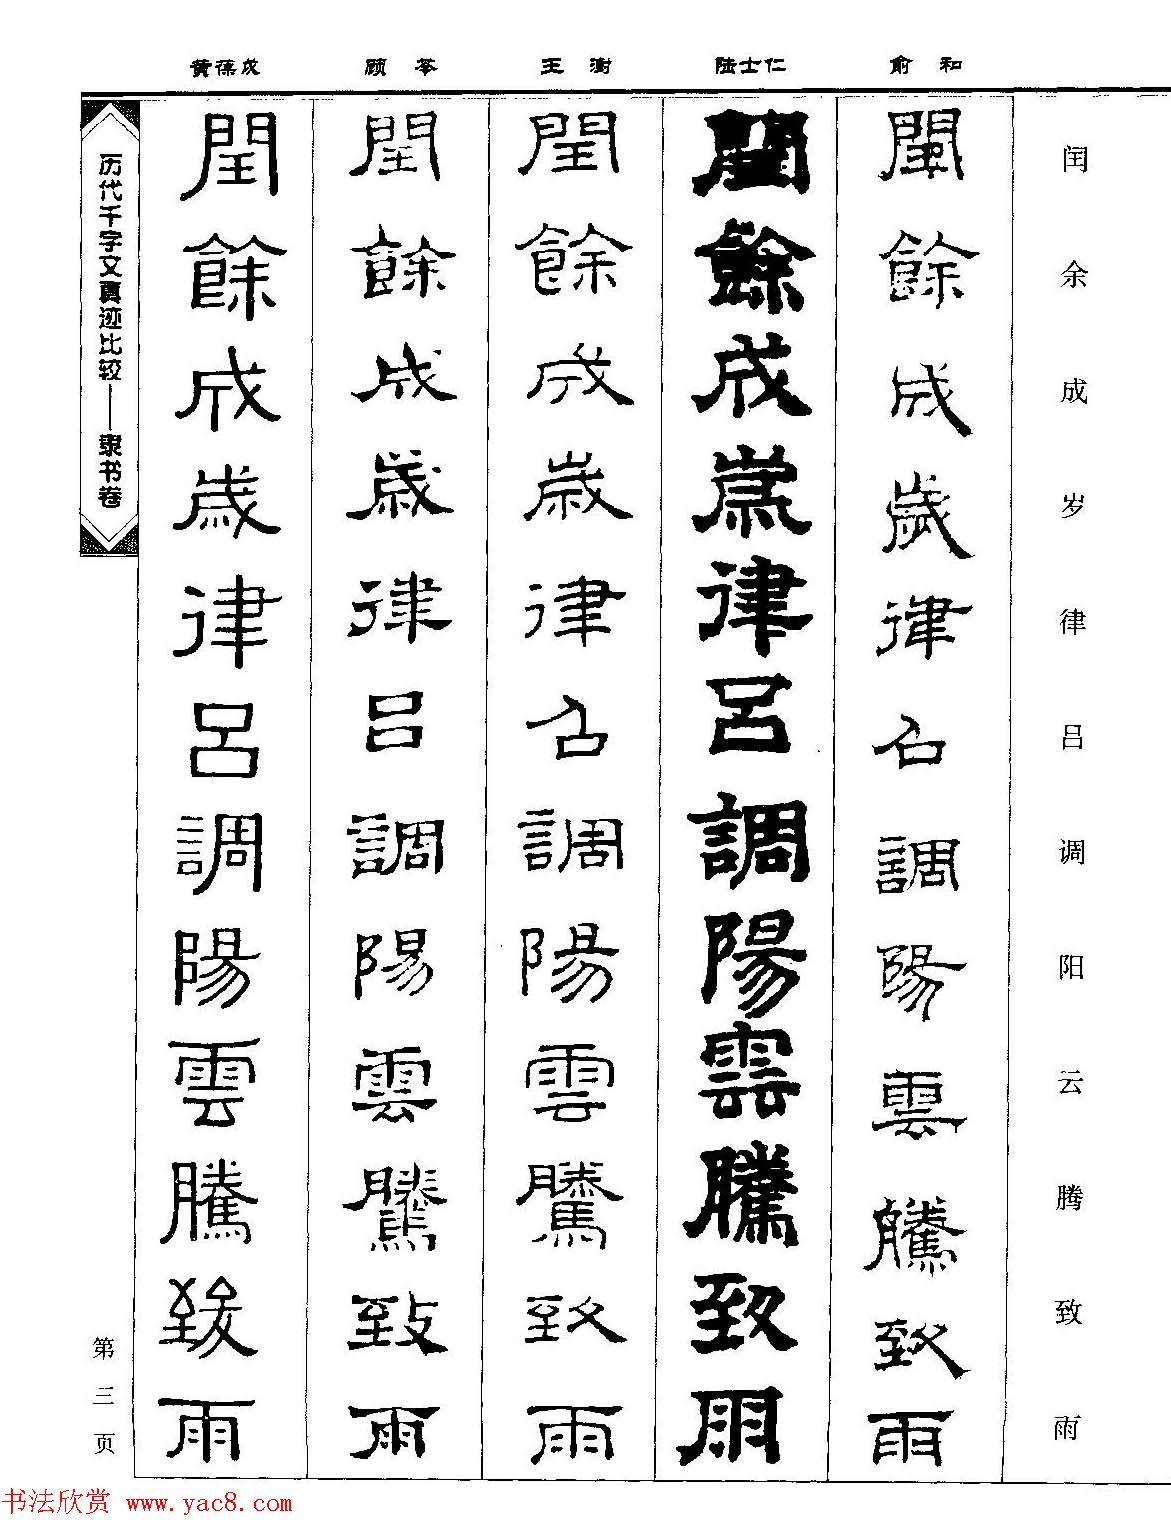 闰余成岁律吕调阳云腾致雨
俞和
閏餘成歲律召調陽雲騰致雨
陆士仁
閏餘成歲律呂調陽雲騰致雨
王澍
閏餘成歲律召調陽雲騰致雨
顾苓
閏餘成歲律呂調陽雲騰致雨
黄葆戉
閏餘成歲律呂調陽雲騰致雨
历代千字文真迹比较——隶书卷
第三页
书法欣赏 www.yac8.com